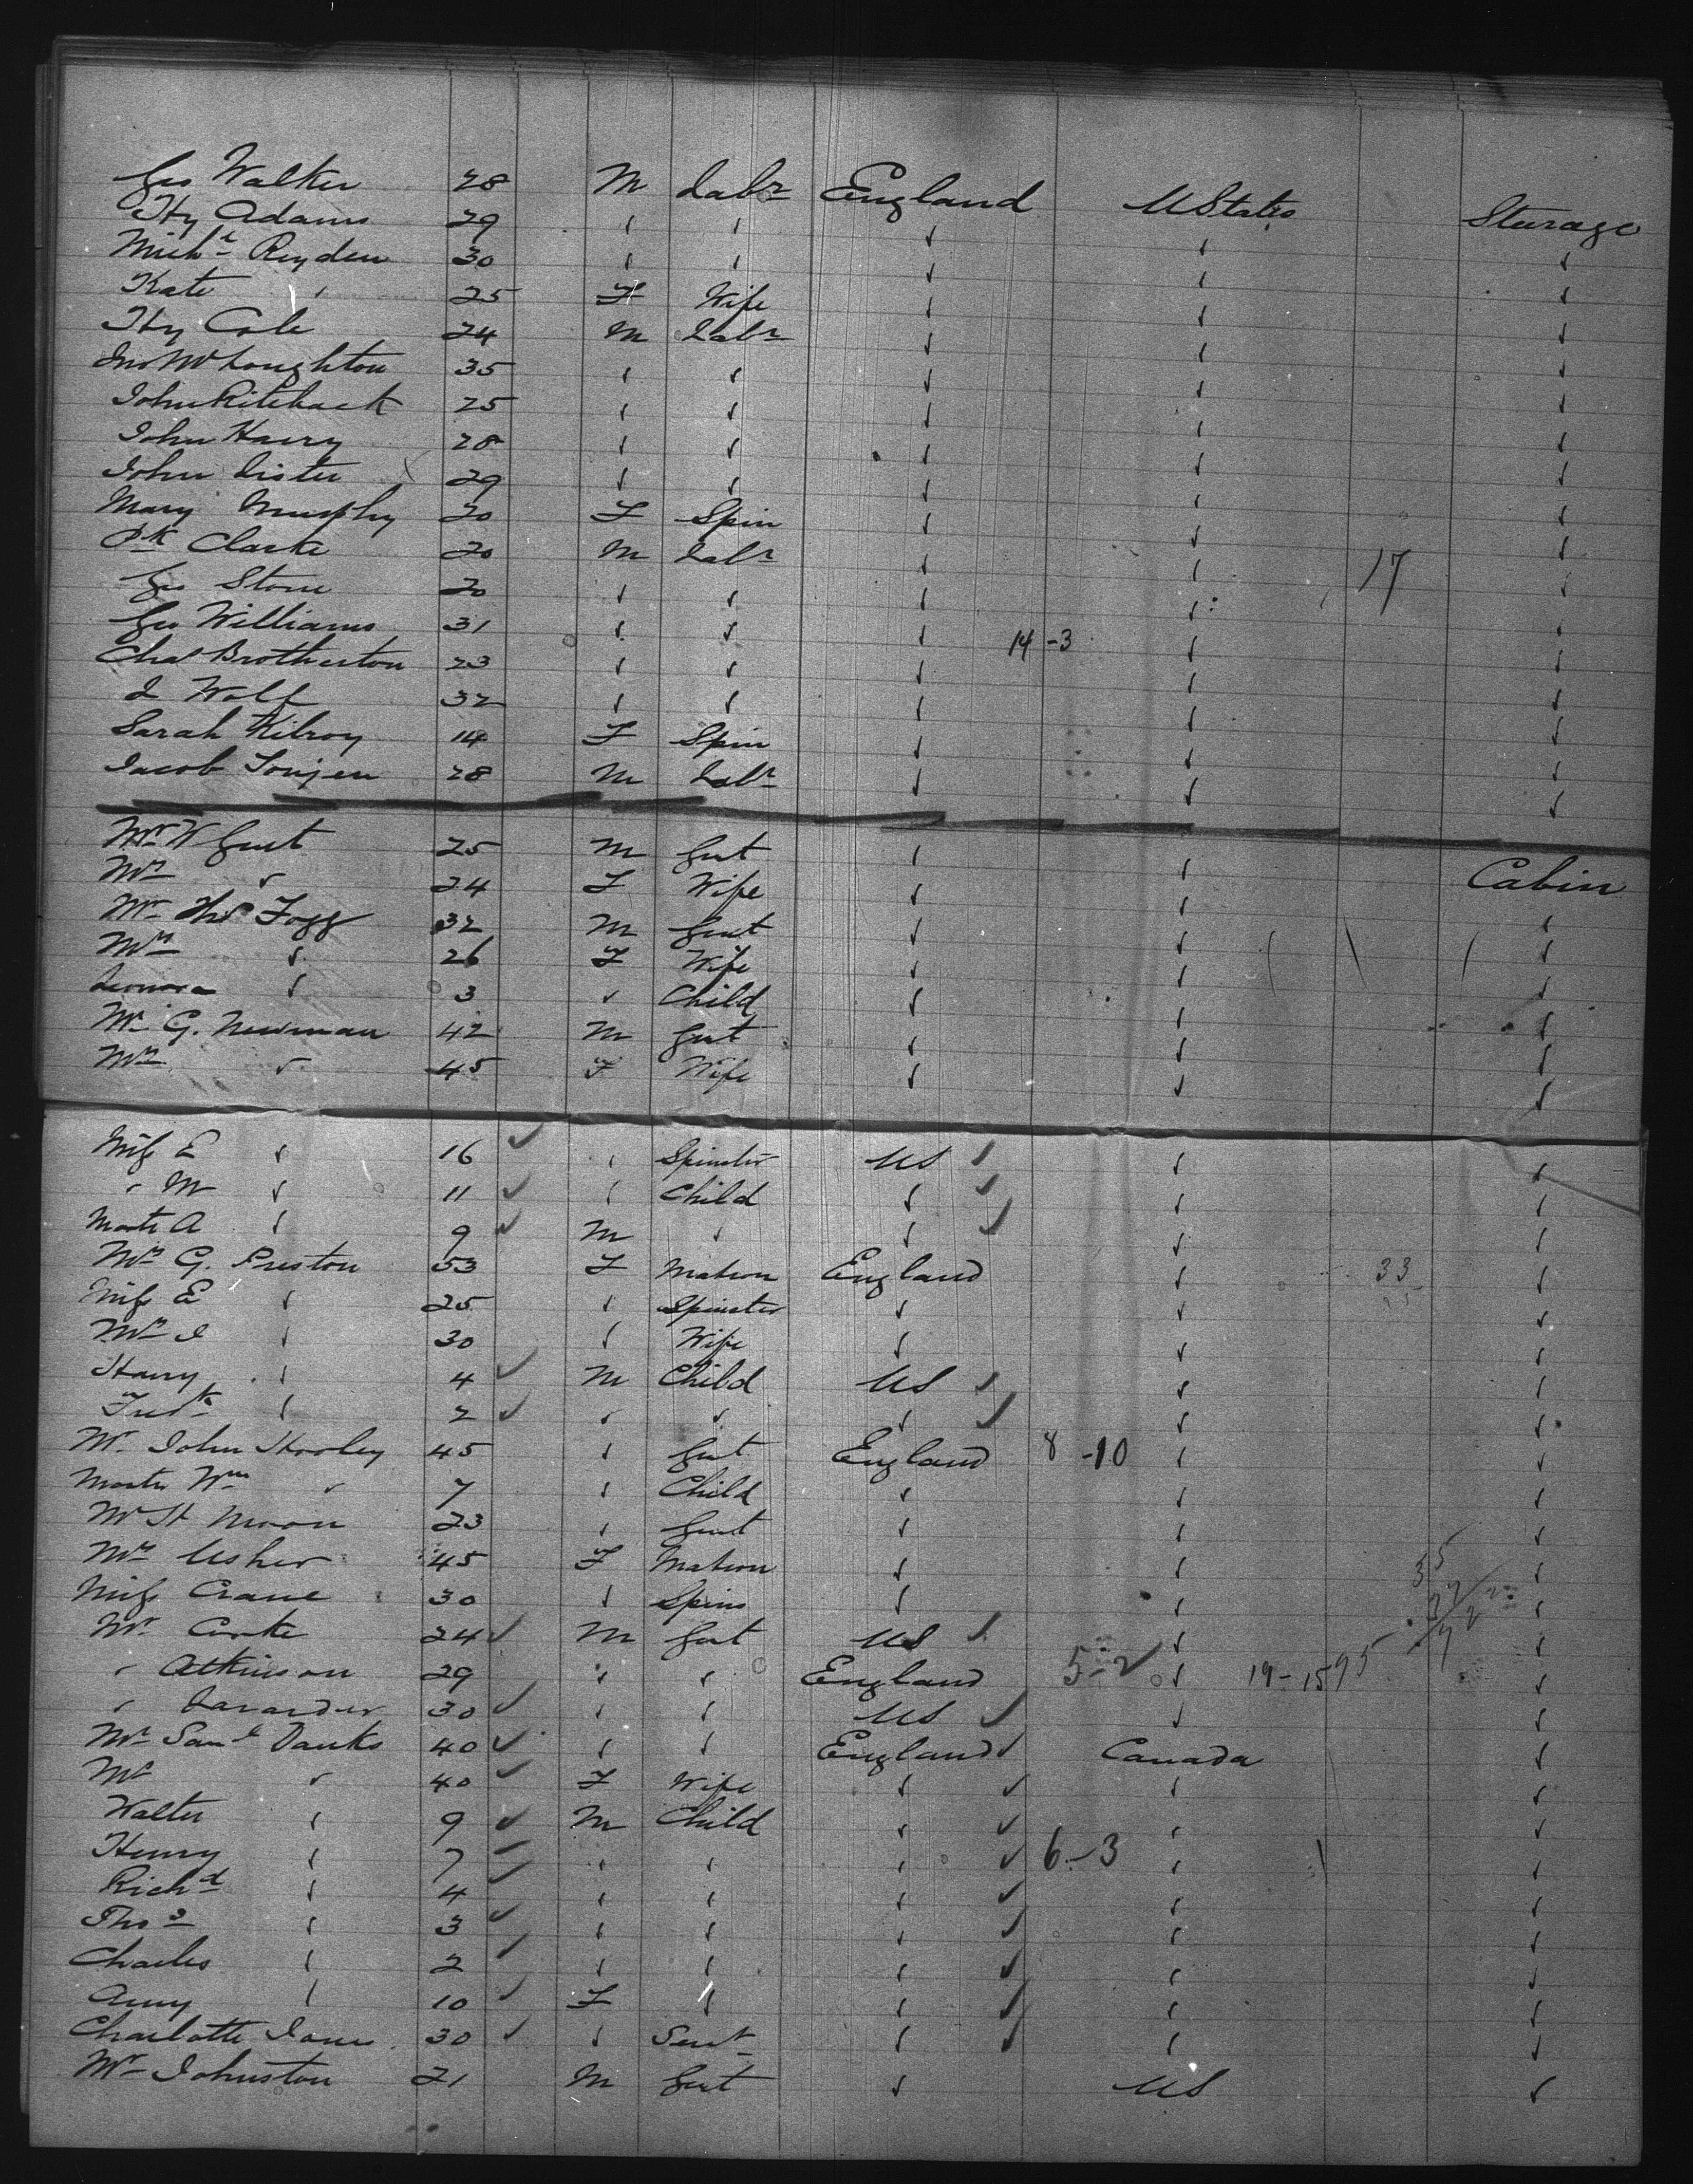 Geo Walker 28 M Labr England U States Steerage
Hy Adams 29 " " " " "
Michl Reyden 30 " " " " "
Kate " 25 F Wife " " "
Hy Cole 24 M Labr " " "
Jno McLoughton 35 " " " " "
John 25 " " " " "
John Harry 28 " " " " "
John Lister 29 " " " " "
Mary Murphy 20 F Spin " " "
Pk Clarke 20 M Labr " " 17 "
Geo Stone 20 " " " " "
Geo Williams 31 " " " 14-3 " "
Chas Brotherton 23 " " " " "
J Wolf 32 " " " " "
Sarah Kilroy 14 F Spin " " "
Jacob 28 M Labr " " "
Mr W Gust 25 M Gent " " Cabin
Mrs " 24 F Wife " " "
Mr Thos Fogg 32 M Gent " " "
Mrs " 26 F Wife " " "
Leonora " 3 " Child " " "
Mr G. Newman 42 M Gent " " "
Mrs " 45 F Wife " " "
Miss E " 16 ✓ " Spinster US ✓ " "
" M " 11 ✓ " Child " ✓ " "
Mastr A " 9 ✓ M " " ✓ " "
Mrs G. Preston 53 F Matron England " 33 "
Miss E " 25 " Spinster " " "
Mrs J " 30 " Wife " " "
Harry " 4 ✓ M Child US ✓ " "
Fredk " 2 ✓ " " " ✓ " "
Mr John Horley 45 " Gent England 8-10 " "
Master Wm " 7 " Child " " "
Mr H Moon 23 " Gent " " "
Mrs Usher 45 F Matron " " 35 "
Miss Crane 30 " Spins " " "
Mr Cooke 24 ✓ M Gent US ✓ " "
" Atkinson 29 " " England 5-2 " 19-15 95 "
" 30 ✓ " " US ✓ " "
Mr Saml Danks 40 ✓ " " England ✓ Canada "
Mrs " 40 ✓ F Wife " ✓ " "
Walter " 9 ✓ M Child " ✓ " "
Henry " 7 ✓ " " " ✓ 6-3 " "
Richd " 4 ✓ " " " ✓ " "
Thos " 3 ✓ " " " ✓ " "
Charles " 2 ✓ " " " ✓ " "
Amy " 10 ✓ F " " ✓ " "
Charlotte Jones 30 ✓ " Sert " ✓ " "
Mr Johnston 21 M Gent " US "